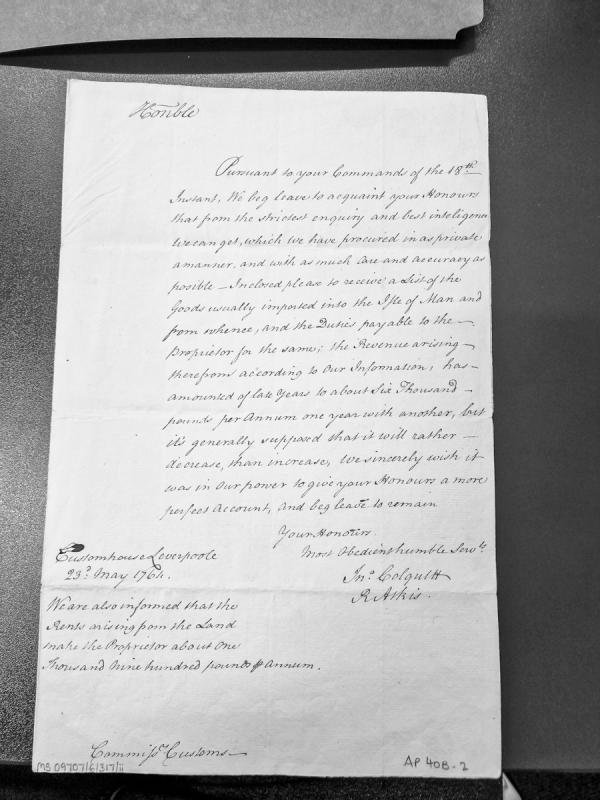 Honble
Pursuant to your Commands of the 18th
Instant, We beg leave to acquaint your Honours
that from the strictest enquiry and best inteligence
we can get, which we have procured in as private
a manner, and with as much care and accuracy as
posible – Inclosed please to receive a List of the
Goods usually imported into the Isle of Man and
from whence, and the Duties payable to the —
Proprietor for the same; the Revenue arising —
therefrom according to Our Information, has —
amounted of late Years to about Six Thousand —
pounds per Annum one year with another, but
it's generally supposed that it will rather —
decrease, than increase, We sincerely wish it
was in Our power to give your Honours a more
perfect Account, and beg leave to remain
Your Honours
Most Obedient humble Servts
Customhouse Leverpoole
23d May 1764.
Jno Colquitt
R Atkis.
We are also informed that the
Rents arising from the Land
make the Proprietor about One
Thousand Nine hundred pounds ⅌ Annum.
Commissrs Customs —
MS 09707/6/317/ii
AP 40B-2